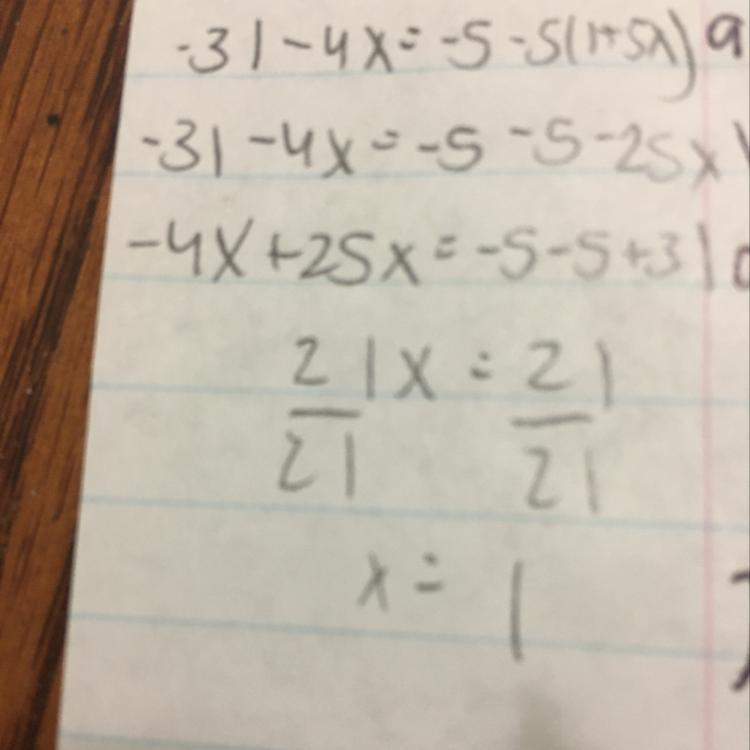 -31-4x=-5-5(1+5x)
-31-4x=-5-5-25x
-4x+25x=-5-5+31
21x=21
21 21
x=1